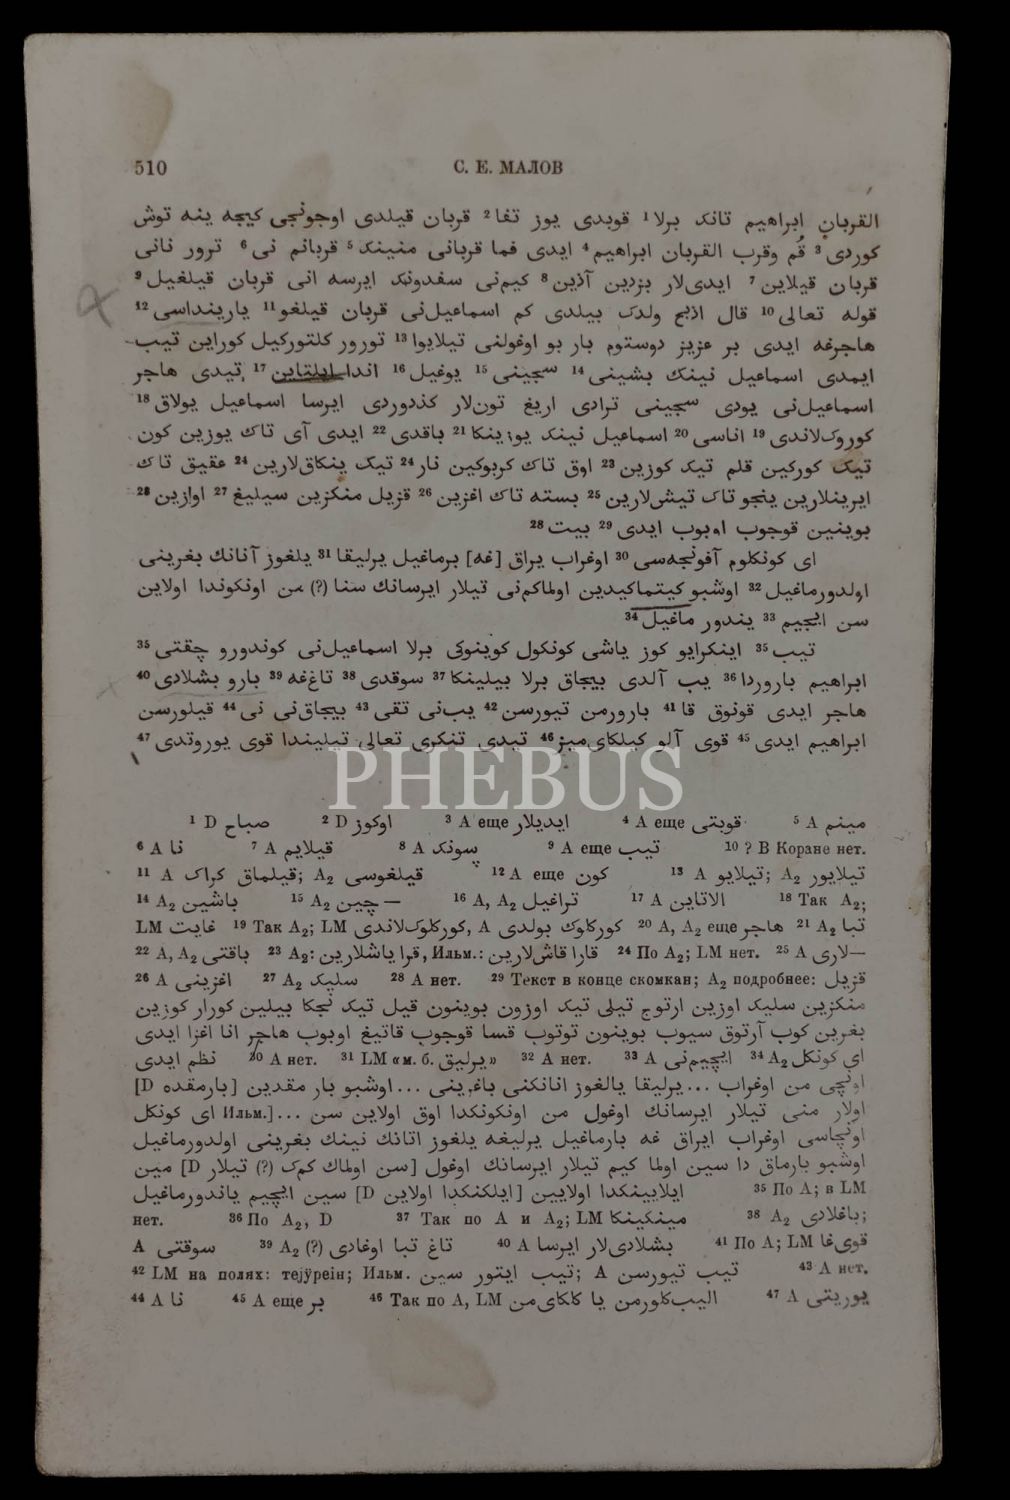 510
С. Е. МАЛОВ
القربان ابراهيم تانك برلا ¹ قوبدى يوز تفا ² قربان قيلدى اوجونجى كيجه ينه توش
كوردى ³ قُم وقرب القربان ابراهيم ⁴ ايدى فما قربانى منينك ⁵ قربانم نى ⁶ ترور نانى
قربان قيلاين ⁷ ايدى‌لار بزدين آذين ⁸ كيم‌نى سفدونك ايرسه انى قربان قيلغيل ⁹
قوله تعالى ¹⁰ قال اذبح ولدك بيلدى كم اسماعيل‌نى قربان قيلغو ¹¹ يارينداسى ¹²
هاجرغه ايدى بر عزيز دوستوم بار بو اوغولنى تيلايوا ¹³ تورور كلتوركيل كوراين تيب
ايمدى اسماعيل نينك بشينى ¹⁴ سجينى ¹⁵ يوغيل ¹⁶ اندا ايلتاين ¹⁷ تيدى هاجر
اسماعيل‌نى يودى سجينى ترادى اريغ تون‌لار كذدوردى ايرسا اسماعيل يولاق ¹⁸
كوروك‌لاندى ¹⁹ اناسى ²⁰ اسماعيل نينك يوزينكا ²¹ باقدى ²² ايدى آى تاك يوزين كون
تيك كوركين قلم تيك كوزين ²³ اوق تاك كربوكين نار ²⁴ تيك ينكاق‌لارين ²⁴ عقيق تاك
ايرينلارين ينجو تاك تيش‌لارين ²⁵ بسته تاك اغزين ²⁶ قزيل منكزين سيليغ ²⁷ اوازين ²⁸
بوينين قوجوب اوبوب ايدى ²⁹ بيت ²⁸
اى كونكلوم آفونجه‌سى ³⁰ اوغراب يراق [غه] برماغيل يرليقا ³¹ يلغوز آنانك بغرينى
اولدورماغيل ³² اوشبو كيتماكيدين اولماكم‌نى تيلار ايرسانك سنا (?) من اونكوندا اولاين
سن ايجيم ³³ يندور ماغيل ³⁴
تيب ³⁵ اينكرايو كوز ياشى كونكول كوينوكى برلا اسماعيل‌نى كوندورو چقتى ³⁵
ابراهيم باروردا ³⁶ يب آلدى بيجاق برلا بيلينكا ³⁷ سوقدى ³⁸ تاغ‌غه ³⁹ بارو بشلادى ⁴⁰
هاجر ايدى قونوق قا ⁴¹ بارورمن تيورسن ⁴² يب‌نى تقى ⁴³ بيجاق‌نى نى ⁴⁴ قيلورسن
ابراهيم ايدى ⁴⁵ قوى آلو كيلكاى‌ميز ⁴⁶ تيدى تنكرى تعالى تيليندا قوى يوروتدى ⁴⁷
PHEBUS
¹ D صباح ² D اوكوز ³ A еще ايديلار ⁴ A еще قوبتى ⁵ A مينم
⁶ A نا ⁷ A قيلايم ⁸ A سونك ⁹ A еще تيب ¹⁰ ? В Коране нет.
¹¹ A قيلماق كراك; A₂ قيلغوسى ¹² A еще كون ¹³ A تيلايو; A₂ تيلايور
¹⁴ A₂ باشين ¹⁵ A₂ چين — ¹⁶ A, A₂ تراغيل ¹⁷ A الاتاين ¹⁸ Так A₂;
LM غايت ¹⁹ Так A₂; LM كوركلوك‌لاندى, A كوركلوك بولدى ²⁰ A, A₂ еще هاجر ²¹ A₂ تبا
²² A, A₂ باقتى ²³ A₂: قرا ياشلارين, Ильм.: قارا قاش‌لارين ²⁴ По A₂; LM нет. ²⁵ A لارى—
²⁶ A اغزينى ²⁷ A₂ سليك ²⁸ A нет. ²⁹ Текст в конце скомкан; A₂ подробнее: قزيل
منكزين سليك اوزين ارتوج تيلى تيك اوزون بوينون قيل تيك نجكا بيلين كورار كوزين
بغرين كوب آرتوق سيوب بوينون توتوب قسا قوجوب قاتيغ اوبوب هاجر انا اغزا ايدى
نظم ايدى ³⁰ A нет. ³¹ LM «м. б. يرليق» ³² A нет. ³³ A ايچيم‌نى ³⁴ A₂ اى كونكل
اونچى من اوغراب ... يرليقا يالغوز انانكنى باغرينى ... اوشبو بار مقدين [بارمقده D]
اولار منى تيلار ايرسانك اوغول من اونكونكدا اوق اولاين سن ... [.Ильм اى كونكل
اونچاسى اوغراب ايراق غه بارماغيل يرليغه يلغوز اتانك نينك بغرينى اولدورماغيل
اوشبو بارماق دا سين اولما كيم تيلار ايرسانك اوغول [سن اولماك كم‌ك (?) تيلار D] مين
ايلايينكدا اولايين [ايلكنكدا اولاين D] سين ايچيم ياندورماغيل ³⁵ По A; в LM
нет. ³⁶ По A₂, D ³⁷ Так по A и A₂; LM مينكينكا ³⁸ A₂ باغلادى;
A سوقتى ³⁹ A₂ (?) تاغ تبا اوغادى ⁴⁰ A بشلادى‌لار ايرسا ⁴¹ По A; LM قوى‌غا
⁴² LM на полях: тејӱреін; Ильм. تيب ايتور سين; A تيب تيورسن ⁴³ A нет.
⁴⁴ A نا ⁴⁵ A еще بر ⁴⁶ Так по A, LM اليب‌كلورمن يا كلكاى‌من ⁴⁷ A يوريتى